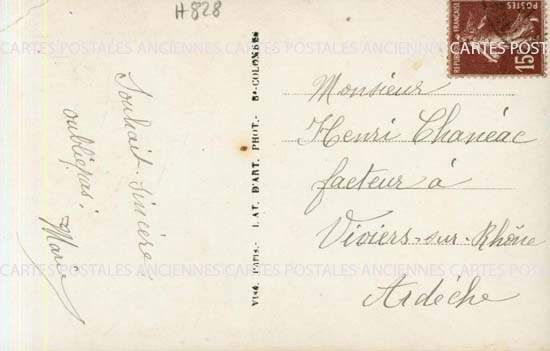 #828
Souhait sincère
oubliepas!
Marie
VISA PARIS.- LAT. D'ART. PHOT.- Bs-COLOMBES
REPUBLIQUE FRANÇAISE
POSTES
15
Monsieur
Henri Chanéac
facteur à
Viviers-sur-Rhône
Ardèche
CARTES POSTALES ANCIENNES CARTES POSTALES ANCIENNES CARTES POST
CARTES POSTALES ANCIENNES CARTES POSTALES ANCIENNES CARTES POST